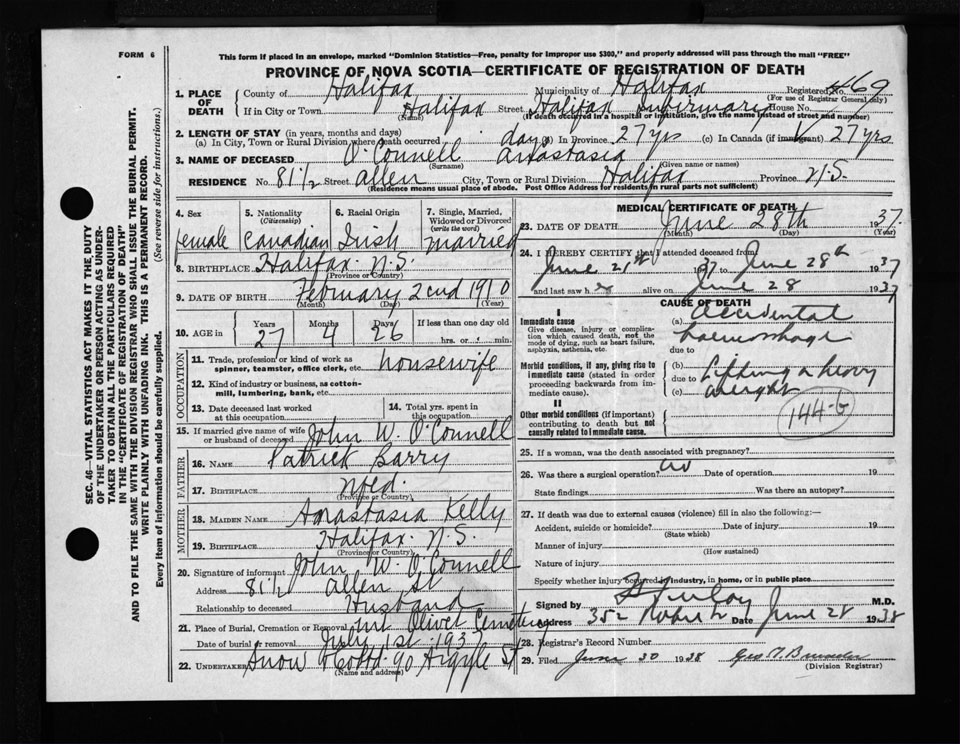 FORM 6
This form if placed in an envelope, marked "Dominion Statistics—Free, penalty for improper use $300," and properly addressed will pass through the mail "FREE"
PROVINCE OF NOVA SCOTIA—CERTIFICATE OF REGISTRATION OF DEATH
SEC. 46—VITAL STATISTICS ACT MAKES IT THE DUTY
OF THE UNDERTAKER OR PERSON ACTING AS UNDER-
TAKER TO OBTAIN ALL THE PARTICULARS REQUIRED
IN THE "CERTIFICATE OF REGISTRATION OF DEATH"
AND TO FILE THE SAME WITH THE DIVISION REGISTRAR WHO SHALL ISSUE THE BURIAL PERMIT.
WRITE PLAINLY WITH UNFADING INK. THIS IS A PERMANENT RECORD.
Every item of information should be carefully supplied. (See reverse side for instructions.)
1. PLACE OF DEATH County of Halifax Municipality of Halifax Registered No.
(For use of Registrar General only)
If in City or Town Halifax Street Halifax Infirmary House No.
(Name) (If death occurred in a hospital or institution, give the name instead of street and number)
2. LENGTH OF STAY (in years, months and days)
(a) In City, Town or Rural Division where death occurred days (b) In Province 27 yrs (c) In Canada (if immigrant) 27 yrs
3. NAME OF DECEASED O'Connell Anastasia
(Surname) (Given name or names)
RESIDENCE No. 81 1/2 Street Allen City, Town or Rural Division Halifax Province N.S.
(Residence means usual place of abode. Post Office Address for residents in rural parts not sufficient)
4. Sex female
5. Nationality (Citizenship) Canadian
6. Racial Origin Irish
7. Single, Married, Widowed or Divorced (write the word) married
8. BIRTHPLACE Halifax N.S.
(Province or Country)
9. DATE OF BIRTH February 2cnd 1910
(Month) (Day) (Year)
10. AGE in Years 27 Months 4 Days 26 If less than one day old hrs. or min.
OCCUPATION
11. Trade, profession or kind of work as spinner, teamster, office clerk, etc. housewife
12. Kind of industry or business, as cotton-mill, lumbering, bank, etc.
13. Date deceased last worked at this occupation
14. Total yrs. spent in this occupation
15. If married give name of wife or husband of deceased John W. O'Connell
FATHER
16. NAME Patrick Barry
17. BIRTHPLACE Nfld.
(Province or Country)
MOTHER
18. MAIDEN NAME Anastasia Kelly
19. BIRTHPLACE Halifax N.S.
(Province or Country)
20. Signature of informant John W. O'Connell
Address 81 1/2 Allen St
Relationship to deceased Husband
21. Place of Burial, Cremation or Removal Mt Olivet Cemetery
Date of burial or removal July 1st 1937
22. UNDERTAKER Snow & Co Ltd. 90 Argyle St
(Name and address)
MEDICAL CERTIFICATE OF DEATH
23. DATE OF DEATH June 28th 1937.
(Month) (Day) (Year)
24. I HEREBY CERTIFY that I attended deceased from
June 21st 1937 to June 28th 1937
and last saw her alive on June 28 1937
CAUSE OF DEATH
I
Immediate cause
Give disease, injury or complication which caused death, not the mode of dying, such as heart failure, asphyxia, asthenia, etc.
(a) Accidental haemorrhage
due to
Morbid conditions, if any, giving rise to immediate cause (stated in order proceeding backwards from immediate cause).
(b) due to Lifting a heavy
(c) weight
144-b
II
Other morbid conditions (if important) contributing to death but not causally related to immediate cause.
25. If a woman, was the death associated with pregnancy?
26. Was there a surgical operation? Date of operation 19
State findings Was there an autopsy?
27. If death was due to external causes (violence) fill in also the following:—
Accident, suicide or homicide? Date of injury 19
(State which)
Manner of injury
(How sustained)
Nature of injury
Specify whether injury occurred in industry, in home, or in public place
Signed by M.D.
Address 352 Date June 28 1938
28. Registrar's Record Number
29. Filed June 30 1938
(Division Registrar)